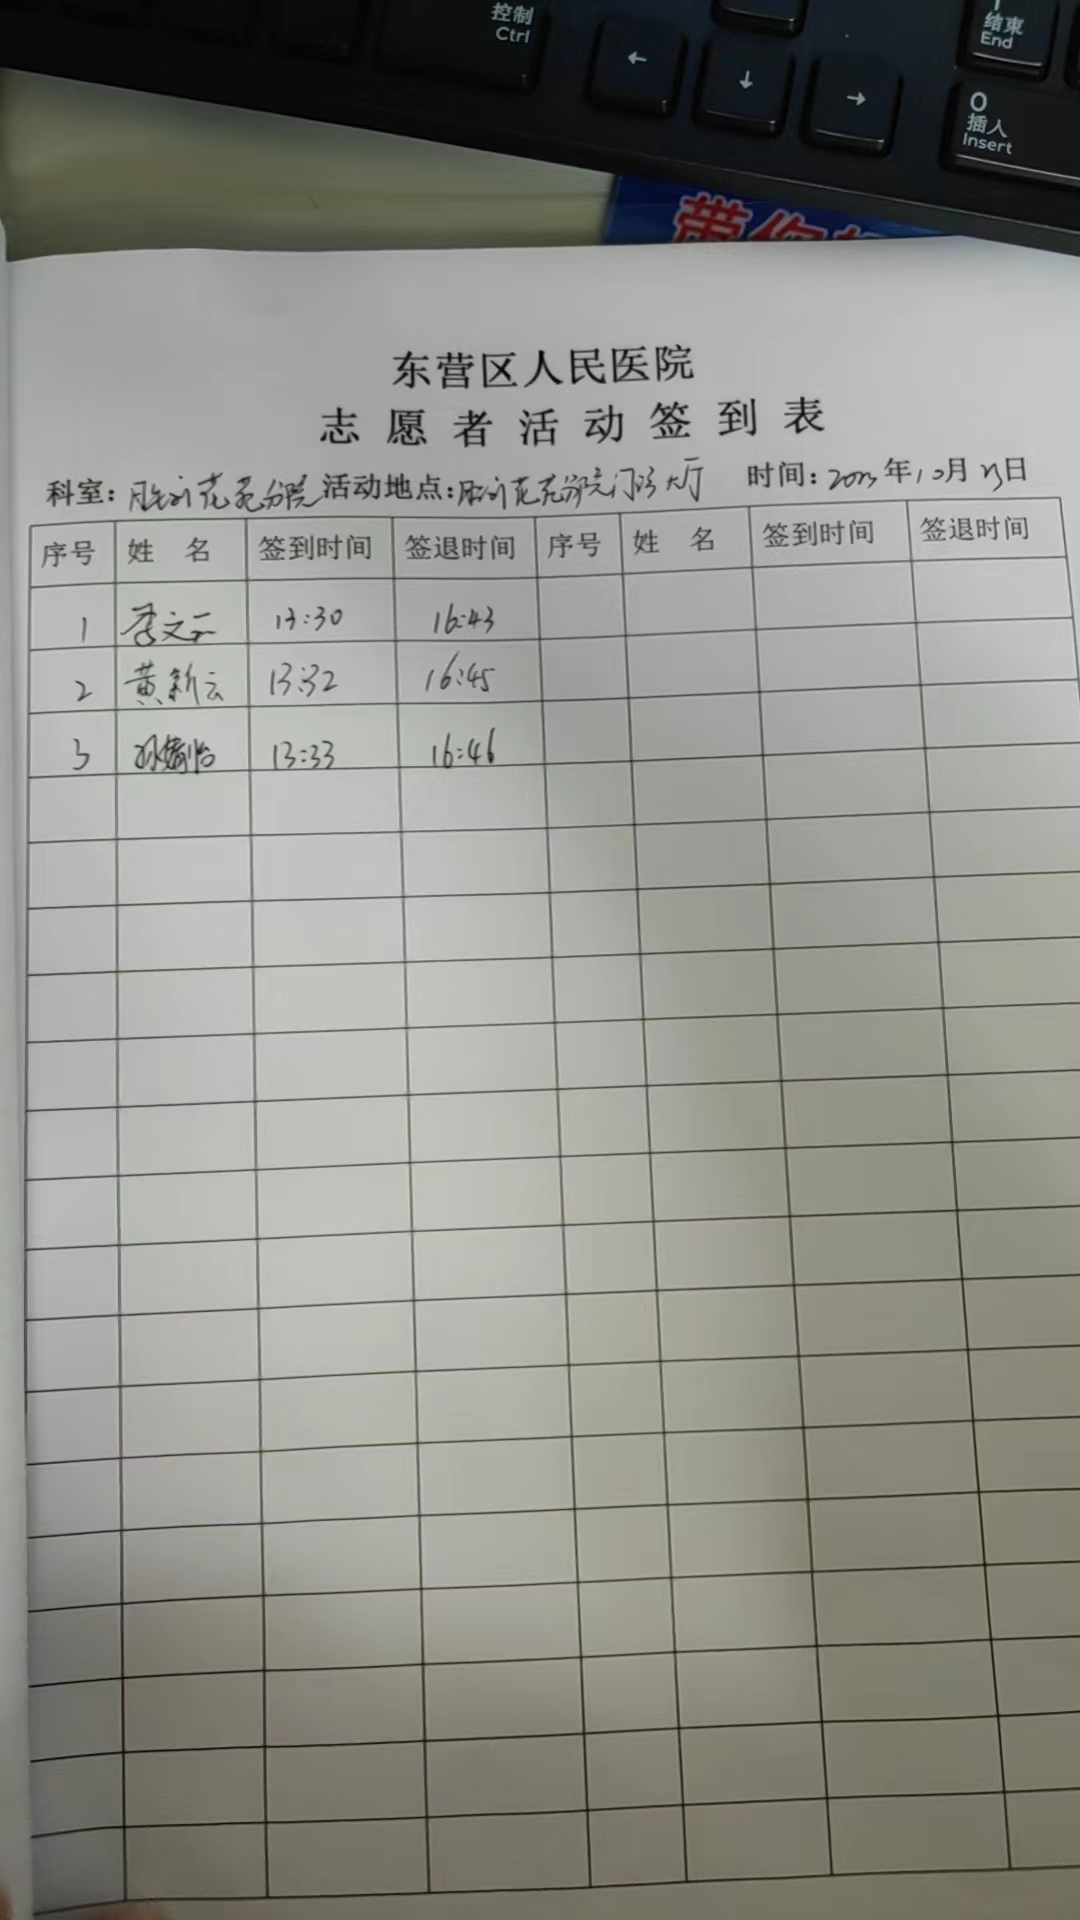 控制
Ctrl
←
↓
→
结束
End
0
插入
Insert
带你
东营区人民医院
志愿者活动签到表
科室:胜利花苑分院 活动地点:胜利花苑分院门诊大厅 时间: 年10月 日
序号 姓名 签到时间 签退时间 序号 姓名 签到时间 签退时间
1 文云 13:30 16:43
2 黄新云 13:32 16:45
3 孙 怡 13:33 16:46